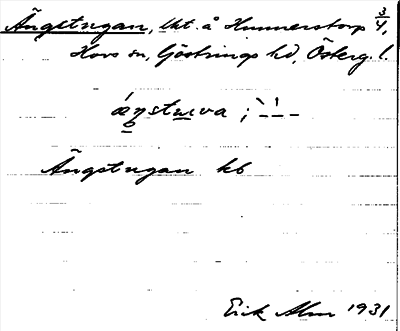 Ängstugan, lht. å Hunnerstorp 3/4,
Hovs sn, Göstrings hd, Österg. l.
ǽŋstɯva ;
Ängstugan kb
Erik Alm 1931